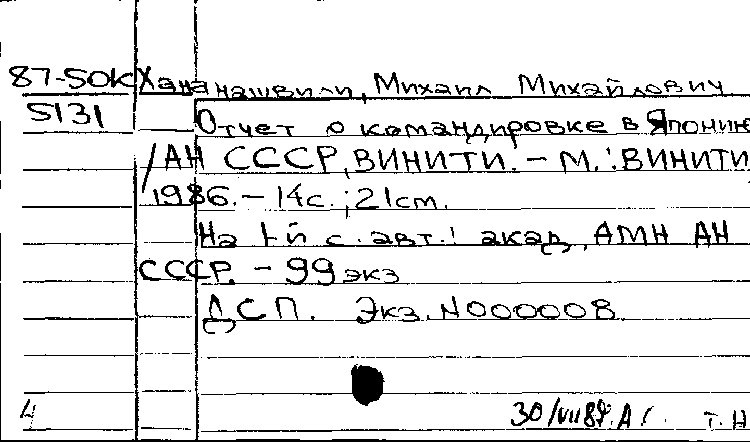 87-50К Хананашвили, Михаил Михайлович
5131 Отчет о командировке в Японию
/АН СССР, ВИНИТИ. – М.: ВИНИТИ
1986. – 14с.; 21см.
На 1-й с. авт.: акад. АМН АН
СССР. – 99 экз
ДСП. Экз. N000008.
4 30/VII 87. т. Н